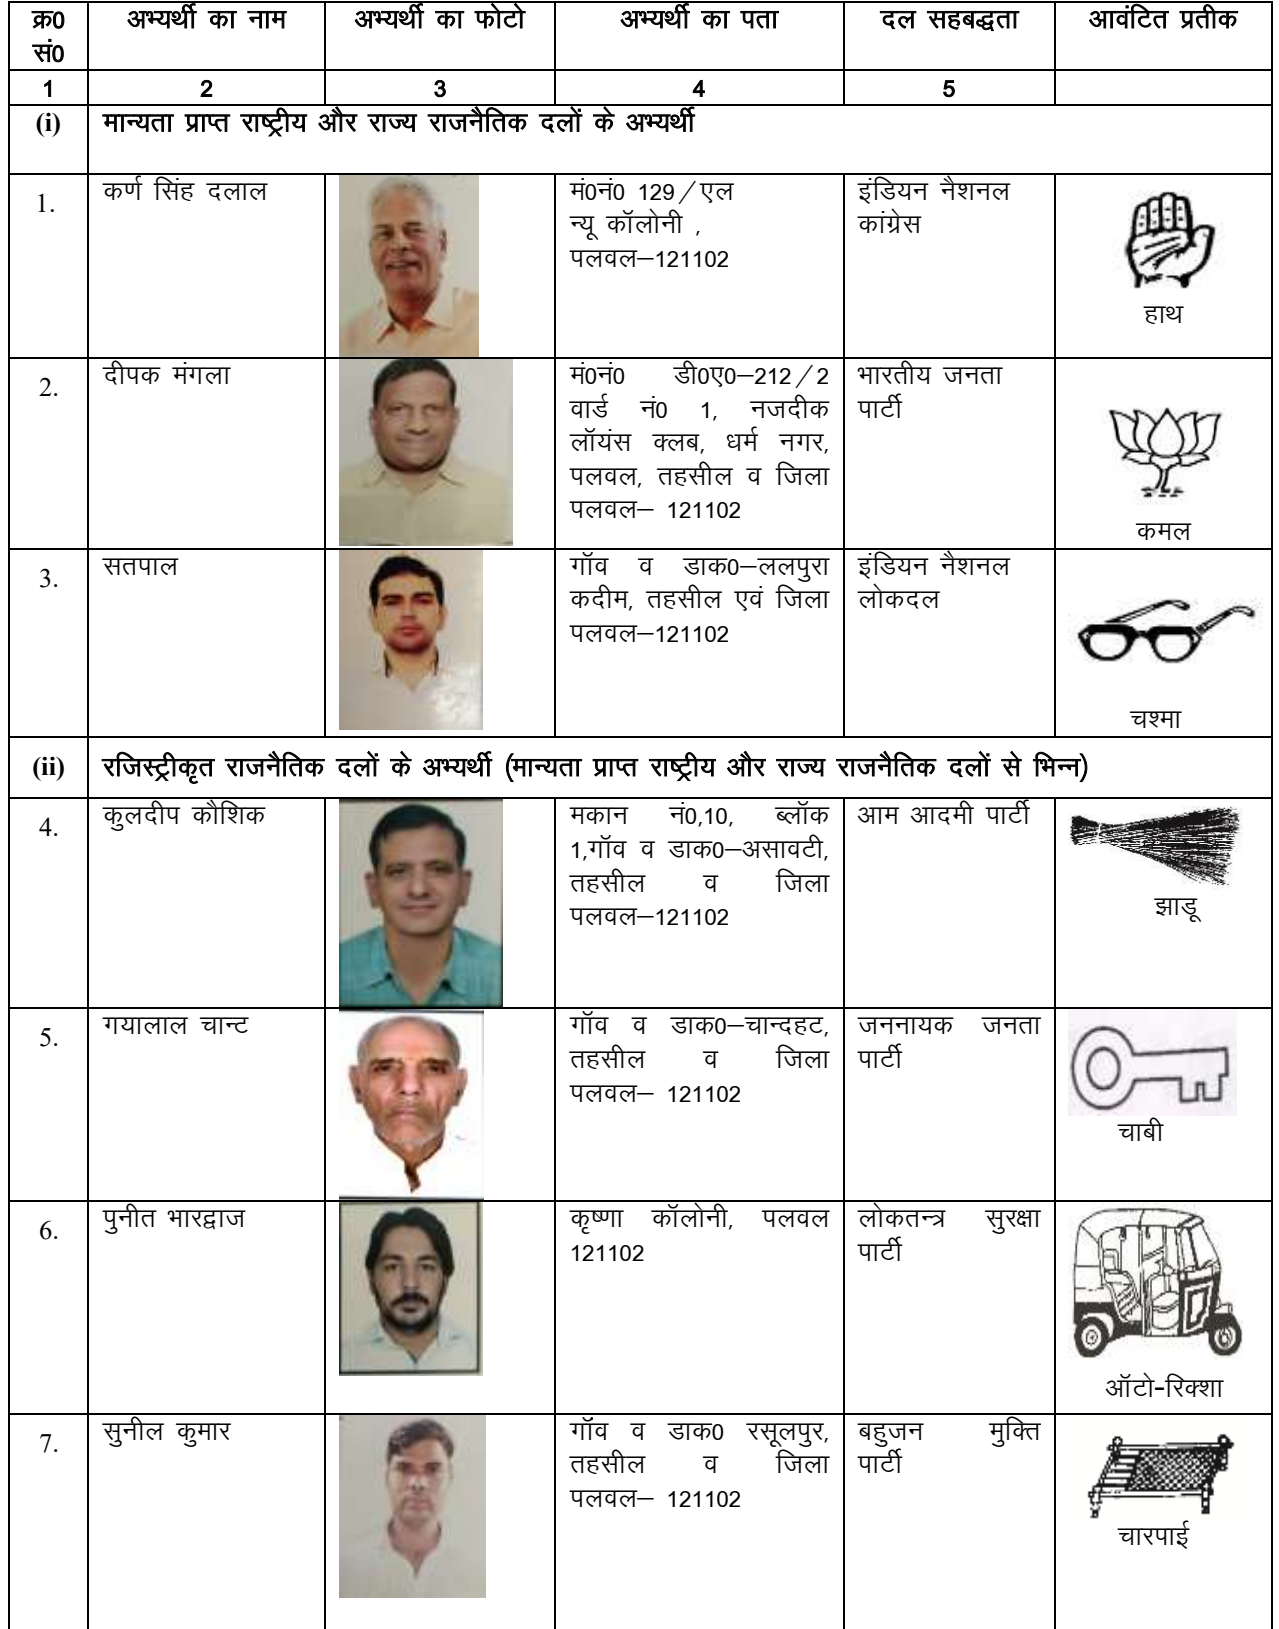 क्र0 सं0 अभ्यर्थी का नाम अभ्यर्थी का फोटो अभ्यर्थी का पता दल सहबद्धता आवंटित प्रतीक
1 2 3 4 5
(i) मान्यता प्राप्त राष्ट्रीय और राज्य राजनैतिक दलों के अभ्यर्थी
1.
कर्ण सिंह दलाल
मं0नं0 129/एल
न्यू कॉलोनी ,
पलवल–121102
इंडियन नैशनल
कांग्रेस
हाथ
2.
दीपक मंगला
मं0नं0 डी0ए0–212/2
वार्ड नं0 1, नजदीक
लॉयंस क्लब, धर्म नगर,
पलवल, तहसील व जिला
पलवल– 121102
भारतीय जनता
पार्टी
कमल
3.
सतपाल
गॉव व डाक0–ललपुरा
कदीम, तहसील एवं जिला
पलवल–121102
इंडियन नैशनल
लोकदल
चश्मा
(ii) रजिस्ट्रीकृत राजनैतिक दलों के अभ्यर्थी (मान्यता प्राप्त राष्ट्रीय और राज्य राजनैतिक दलों से भिन्न)
4.
कुलदीप कौशिक
मकान नं0,10, ब्लॉक
1,गॉव व डाक0–असावटी,
तहसील व जिला
पलवल–121102
आम आदमी पार्टी
झाडू
5.
गयालाल चान्ट
गॉव व डाक0–चान्दहट,
तहसील व जिला
पलवल– 121102
जननायक जनता
पार्टी
चाबी
6.
पुनीत भारद्वाज
कृष्णा कॉलोनी, पलवल
121102
लोकतन्त्र सुरक्षा
पार्टी
ऑटो-रिक्शा
7.
सुनील कुमार
गॉव व डाक0 रसूलपुर,
तहसील व जिला
पलवल– 121102
बहुजन मुक्ति
पार्टी
चारपाई